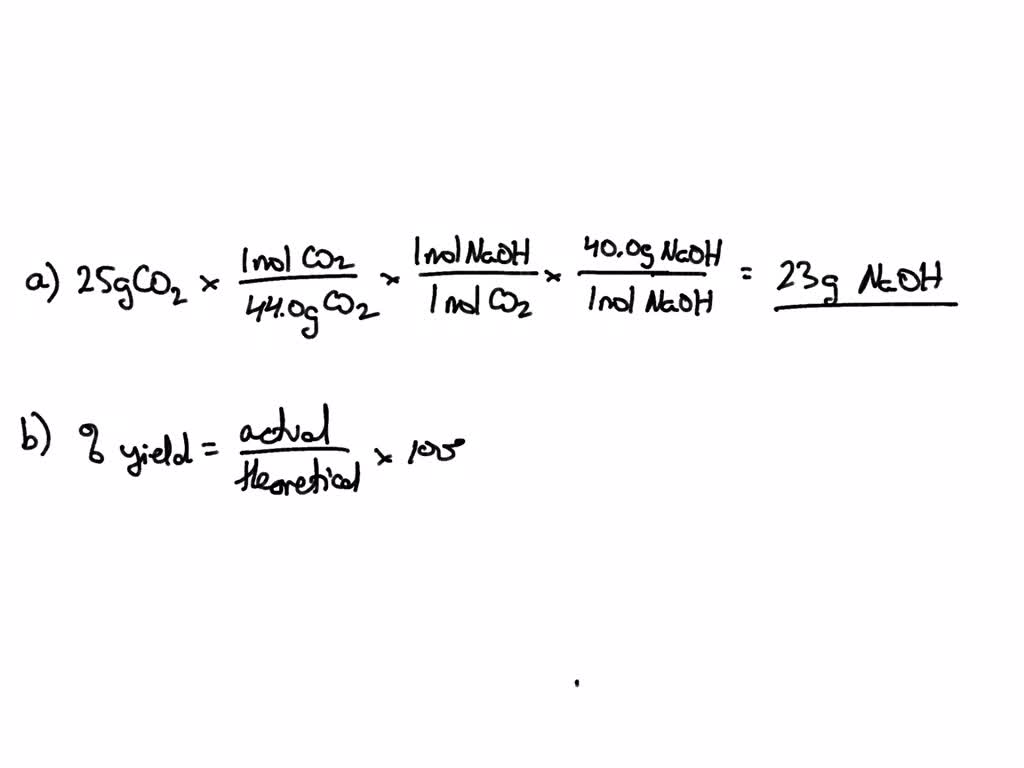 a) 25gCO₂ × 1mol CO₂ / 44.0g CO₂ × 1mol NaOH / 1mol CO₂ × 40.0g NaOH / 1mol NaOH = 23g NaOH
b) % yield = actual / theoretical × 100